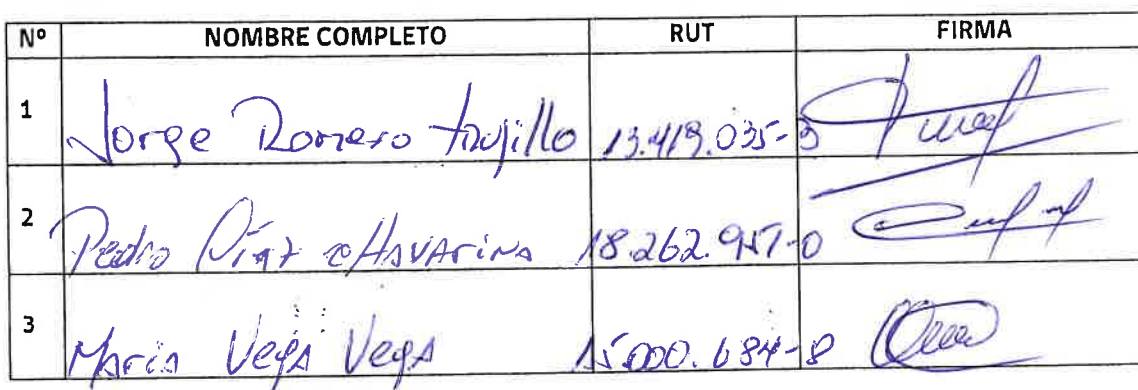 Nº NOMBRE COMPLETO RUT FIRMA
1 Jorge Romero trujillo 13.419.035-3
2 Pedro Díaz cHAVArinA 18.262.957-0
3 María VegA VegA 15.000.684-8